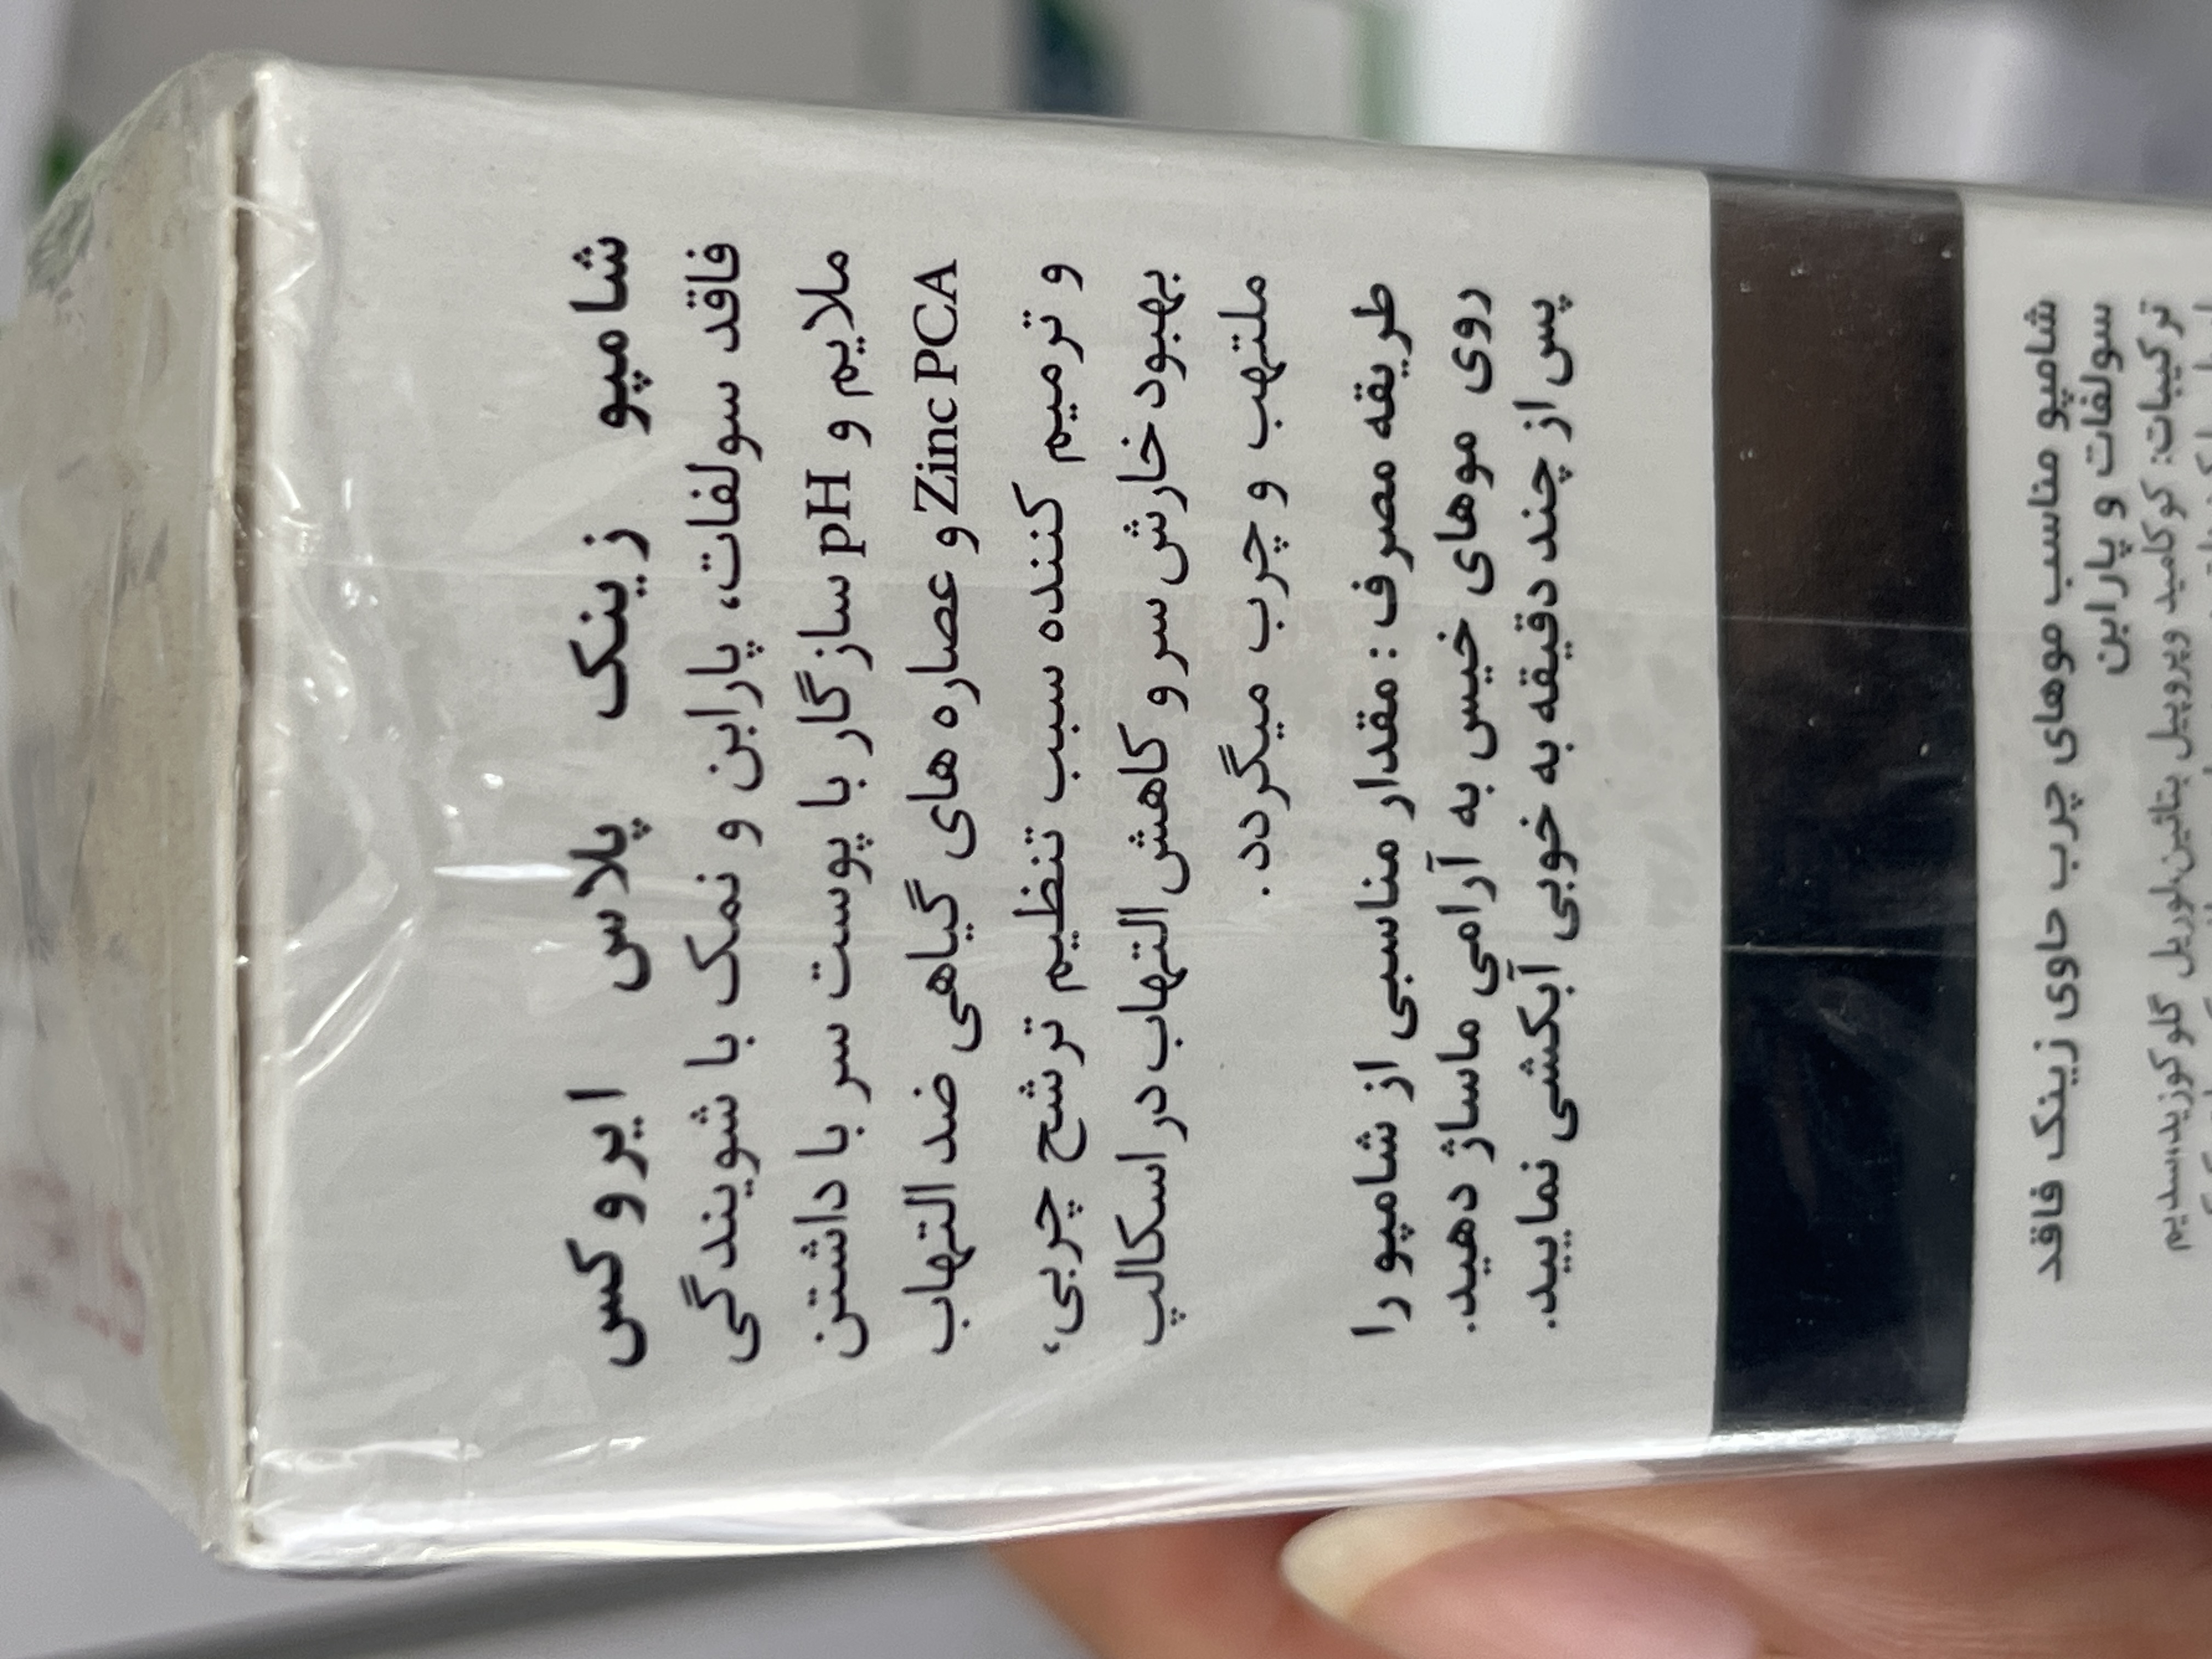 شامپو زینک پلاس ایروکس
فاقد سولفات، پارابن و نمک با شویندگی
ملایم و pH سازگار با پوست سر با داشتن
Zinc PCA و عصاره های گیاهی ضد التهاب
و ترمیم کننده سبب تنظیم ترشح چربی،
بهبود خارش سر و کاهش التهاب در اسکالپ
ملتهب و چرب میگردد.
طریقه مصرف : مقدار مناسبی از شامپو را
روی موهای خیس به آرامی ماساژ دهید.
پس از چند دقیقه به خوبی آبکشی نمایید.
شامپو مناسب موهای چرب حاوی زینک فاقد
سولفات و پارابن
ترکیبات: کوکامید وپروپیل بتائین،لوریل گلوکوزید،سدیم